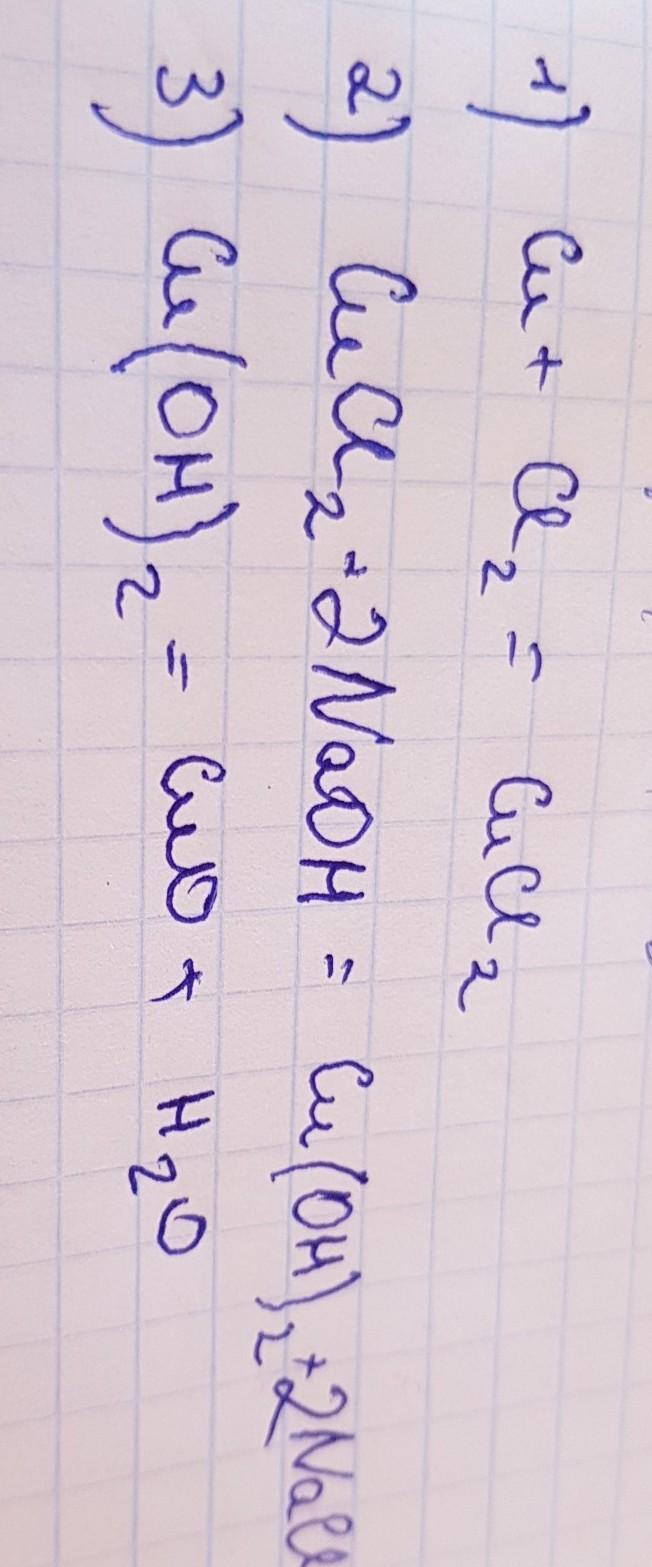 1) Cu + Cl₂ = CuCl₂
2) CuCl₂ + 2NaOH = Cu(OH)₂ + 2NaCl
3) Cu(OH)₂ = CuO + H₂O